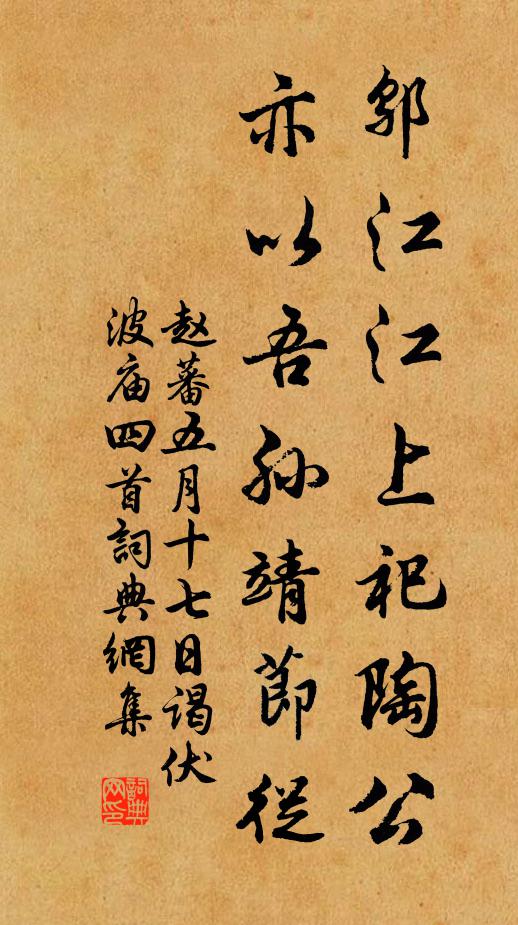 江江上祀陶公
亦以吾孙靖節從
赵蕃五月十七日谒伏
波庙四首詞典網集
詞典
网印